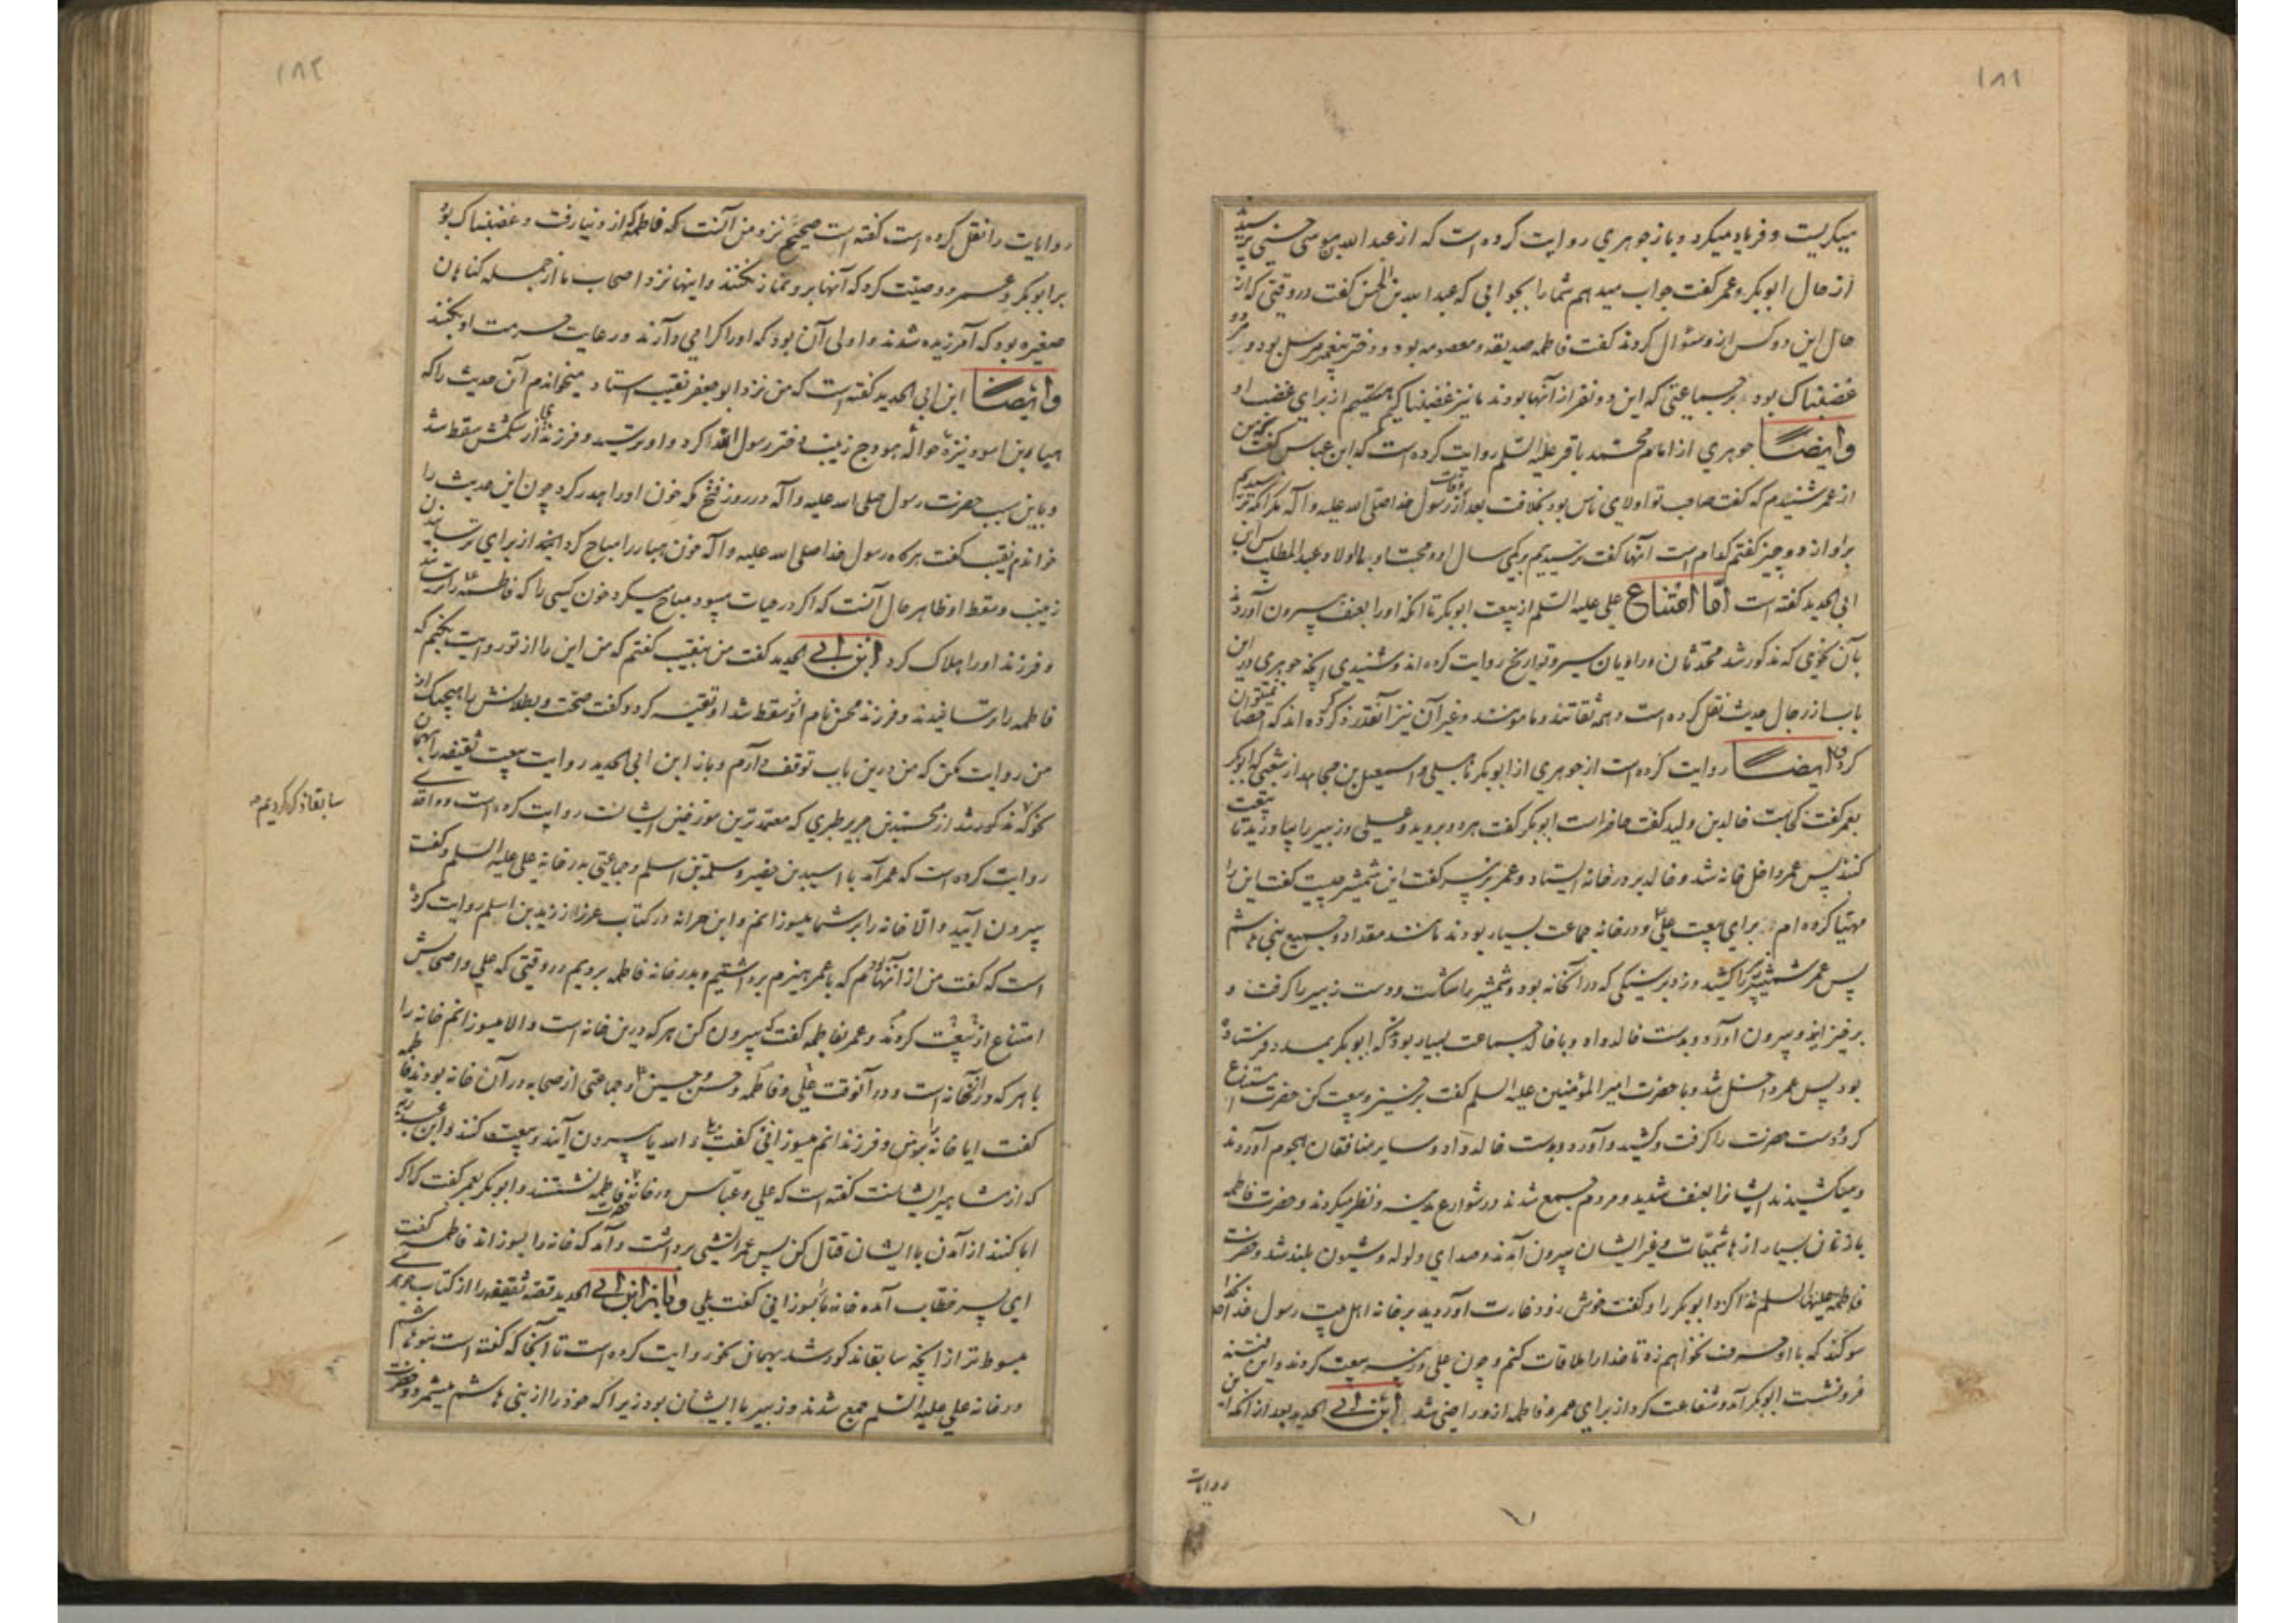 ۱۸۱
میگریست و فریاد میکرد و باز جوهری روایت کرده است که از عبد الله بن موسی حسنی پرسید
از حال ابوبکر و عمر گفت جواب میدهم شما را بجوابی که عبد الله بن الحسن گفت در وقتی که از
حال این دو کس از او سئوال کردند گفت فاطمه صدیقه و معصومه بود و دختر پیغمبر مرسل بود و مرد
غضبناک بود بر جماعتی که این دو نفر از آنها بودند ما نیز غضبناکیم از برای غضب او
و ایضاً جوهری از امام محمد باقر علیه السلم روایت کرده است که ابن عباس گفت که من
از عمر شنیدم که گفت صاحب تو اولای ناس بود بخلافت بعد از وفات رسول خدا صلی الله علیه و آله مگر آنکه ترسیدیم
بر او از دو چیز گفتم کدام است آنها گفت ترسیدیم بر کمی سال او و محبت او با اولاد عبد المطلب پس ابن
ابی الحدید گفته است اما امتناع علی علیه السلم از بیعت ابوبکر تا آنکه او را بعنف بیرون آوردند
بآن نحوی که مذکور شد محدثان و راویان سیر و تواریخ روایت کرده اند و شنیدی آنچه جوهری در این
باب از رجال حدیث نقل کرده است و همه ثقاتند و مامونند و غیر آن نیز آنقدر ذکر کرده اند که احصا نمیتوان
کرد و ایضاً روایت کرده است از جوهری از ابوبکر باهلی و اسمعیل بن مجاهد از شعبی که ابوبکر
بعمر گفت کجاست خالد بن ولید گفت حاضر است ابوبکر گفت هر دو بروید و علی و زبیر را بیاورید تا بیعت
کنند پس عمر داخل خانه شد و خالد بر در خانه ایستاد و عمر بزبیر گفت این شمشیر چیست گفت این را
مهیا کرده ام برای بیعت علی و در خانه جماعت بسیار بودند مانند مقداد و جمیع بنی هاشم
پس عمر شمشیر را کشید و زد بر سنگی که در آنخانه بود و شمشیر را شکست و دست زبیر را گرفت و
برخیزانید و بیرون آورد و بدست خالد داد و با خالد جماعت بسیار بود که ابوبکر بمدد فرستاده
بود پس عمر داخل شد و با حضرت امیر المؤمنین علیه السلم گفت برخیز و بیعت کن حضرت امتناع
کرد و دست حضرت را گرفت و کشید و آورد و بدست خالد داد و سایر منافقان هجوم آوردند
و میکشیدند ایشانرا بعنف شدید و مردم جمع شدند در شوارع مدینه و نظر میکردند و حضرت فاطمه
با زنان بسیار از هاشمیات و غیر ایشان بیرون آمدند و صدای ولوله و شیون بلند شد و حضرت
فاطمه علیها السلم ندا کرد ابوبکر را و گفت خوش زود غارت آوردید بر خانه اهل بیت رسول خدا بخدا
سوگند که با او حرف نخواهم زد تا خدا را ملاقات کنم و چون علی و زبیر بیعت کردند و این فتنه
فرونشست ابوبکر آمد و شفاعت کرد از برای عمر و فاطمه از او راضی شد ابن ابی الحدید بعد از آنکه این
روایات
۱۸۲
روایات را نقل کرده است گفته است صحیح نزد من آنست که فاطمه از دنیا رفت و غضبناک بود
بر ابوبکر و عمر و وصیت کرد که آنها بر او نماز نکنند و اینها نزد اصحاب ما از جمله گناهان
صغیره بود که آمرزیده شدند و اولی آن بود که او را گرامی دارند و رعایت حرمت او بکنند
و ایضاً ابن ابی الحدید گفته است که من نزد ابو جعفر نقیب استاد میخواندم آن حدیث را که
هبار بن اسود نیزه حواله هودج زینب دختر رسول خدا کرد و او ترسید و فرزندی از شکمش سقط شد
و باین سبب حضرت رسول صلی الله علیه و آله در روز فتح مکه خون او را هدر کرد چون این حدیث را
خواندم نقیب گفت هرگاه رسول خدا صلی الله علیه و آله خون هبار را مباح گرداند از برای ترسانیدن
زینب و سقط او ظاهر حال آنست که اگر در حیات میبود مباح میکرد خون کسی را که فاطمه را ترسانیدند
و فرزند او را هلاک کرد ابن ابی الحدید گفت من بنقیب گفتم که من این را از تو روایت بکنم که
فاطمه را ترسانیدند و فرزند محسن نام از او سقط شد او تقیه کرد و گفت صحت و بطلانش را هیچیک از
من روایت مکن که من درین باب توقف دارم و باز ابن ابی الحدید روایت بیعت ثقیفه را بهمان
نحو که مذکور شد از محمد بن جریر طبری که معتمد ترین مورخین ایشانست روایت کرده است و واقدی
روایت کرده است که عمر آمد با اسید بن حضیر و سلمة بن اسلم و جماعتی بدر خانه علی علیه السلم و گفت
بیرون آیید و الا خانه را بر شما میسوزانم و ابن خرابه در کتاب غرر از زید بن اسلم روایت کرده
است که گفت من از آنها بودم که با عمر هیزم برداشتیم و بدر خانه فاطمه بردیم در وقتی که علی و اصحابش
امتناع از بیعت کردند و عمر بفاطمه گفت که بیرون کن هر که درین خانه است و الا میسوزانم خانه را
با هر که در آنخانه است و در آنوقت علی و فاطمه و حسن و حسین و جماعتی از صحابه در آن خانه بودند فاطمه
گفت ایا خانه را بر من و فرزندانم میسوزانی گفت بلی و الله یا بیرون آیند و بیعت کنند و ابن عبد ربه
که از مشاهیر ایشانست گفته است که علی و عباس در خانه فاطمه نشستند و ابوبکر بعمر گفت که اگر
ابا کنند از آمدن با ایشان قتال کن پس عمر آتشی برداشت و آمد که خانه را بسوزاند فاطمه گفت
ای پسر خطاب آمده خانه ما بسوزانی گفت بلی و باز ابن ابی الحدید قصه ثقیفه را از کتاب جوهری
مبسوط تر از آنچه سابقا مذکور شد بهمان نحو روایت کرده است تا آنجا که گفته است بنو هاشم
در خانه علی علیه السلم جمع شدند و زبیر با ایشان بود زیرا که خود را از بنی هاشم میشمرد و حضرت
سابقا ذکر کردیم